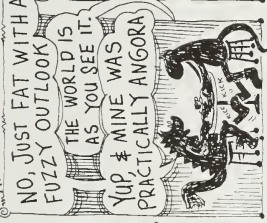 NO, JUST FAT WITH A
FUZZY OUTLOOK
THE WORLD IS
AS YOU SEE IT.
YUP & MINE WAS
PRACTICALLY ANGORA